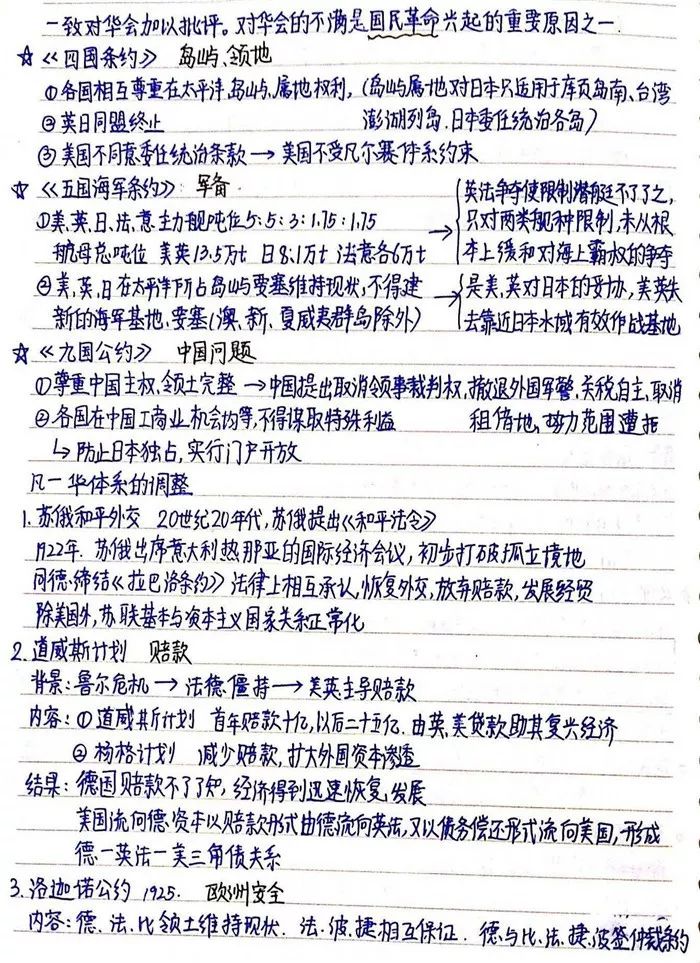 一致对华会加以批评。对华会的不满是国民革命兴起的重要原因之一.
☆《四国条约》 岛屿、领地
①各国相互尊重在太平洋岛屿、属地权利,(岛屿属地对日本只适用于库页岛南、台湾
②英日同盟终止 澎湖列岛.日本委任统治各岛)
③美国不同意委任统治条款→美国不受凡尔赛体系约束
☆《五国海军条约》 军备
①美、英、日、法、意主力舰吨位5:5:3:1.75:1.75
航母总吨位 美英13.5万t 日8.1万t 法意各6万t
→{英法争夺使限制潜艇不了了之,
只对两类舰种限制,未从根
本上缓和对海上霸权的争夺
②美、英、日在太平洋所占岛屿要塞维持现状,不得建
新的海军基地、要塞(澳、新、夏威夷群岛除外)
→{是美、英对日本的妥协,美英失
去靠近日本水域有效作战基地
☆《九国公约》 中国问题
①尊重中国主权、领土完整→中国提出取消领事裁判权,撤退外国军警、关税自主、取消
②各国在中国工商业机会均等,不得谋取特殊利益 租借地,势力范围遭拒
↳防止日本独占,实行门户开放
凡一华体系的调整
1.苏俄和平外交 20世纪20年代,苏俄提出《和平法令》
1922年.苏俄出席意大利热那亚的国际经济会议,初步打破孤立境地
同德缔结《拉巴洛条约》法律上相互承认,恢复外交,放弃赔款,发展经贸
除美国外,苏联基本与资本主义国家关系正常化
2.道威斯计划 赔款
背景:鲁尔危机→法德僵持→美英主导赔款
内容:①道威斯计划 首年赔款十亿,以后二十五亿.由英、美贷款助其复兴经济
②杨格计划 减少赔款,扩大外国资本渗透
结果:德国赔款不了了知,经济得到迅速恢复,发展
美国流向德资本以赔款形式由德流向英法,又以债务偿还形式流向美国,形成
德一英法一美三角债关系
3.洛迦诺公约 1925. 欧洲安全
内容:德、法、比领土维持现状.法、波、捷相互保证.德与比、法、捷、波签仲裁条约